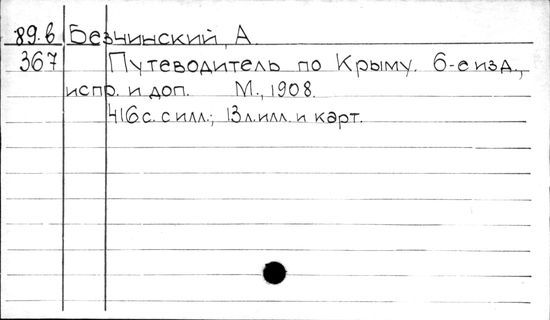 89.в Безчинский, А.
367 Путеводитель по Крыму. 6-е изд.,
испр. и доп. М., 1908.
416 с. с илл.; 13 л. илл. и карт.